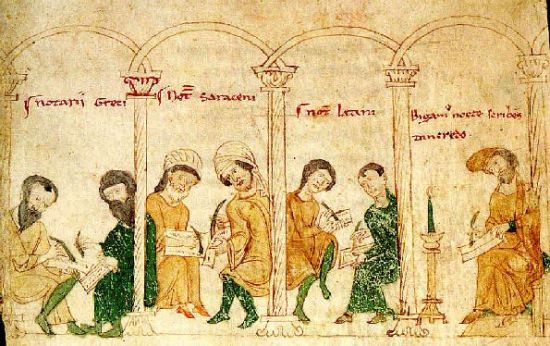 notarii Greci
Not̄ Saraceni
Not̄ Latini
Bigamꝰ nocte scribēs
Tancredo